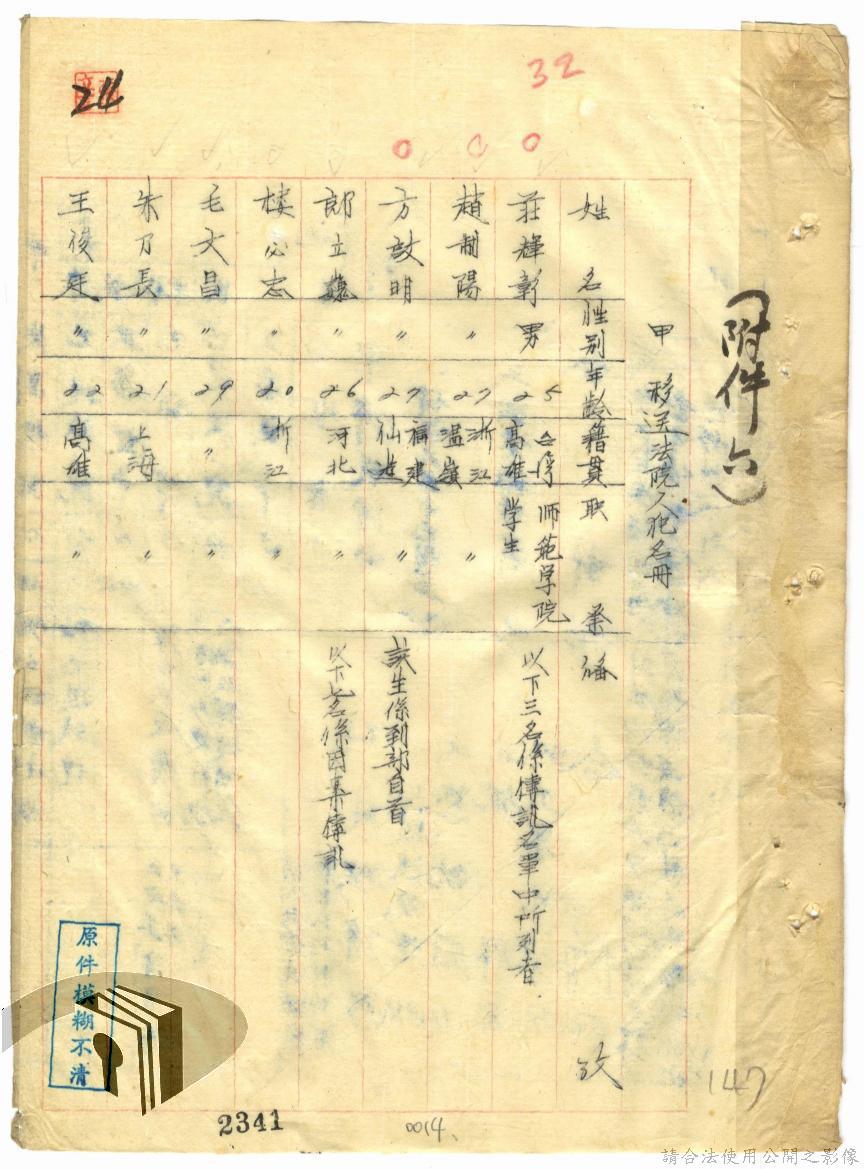 (附件六)
甲　移送法院人犯名冊
姓名　性別　年齡　籍貫　职業　備　攷
莊輝彰　男　25　台灣高雄　师範学院学生　以下三名係傳訊名單中所列者
趙制陽　〃　27　浙江溫嶺　〃
方啟明　〃　27　福建仙遊　〃　該生係到部自首
郎立巍　〃　26　河北　〃　以下七名係因案傳訊
樓必忠　〃　20　浙江　〃
毛文昌　〃　29　〃　〃
朱乃長　〃　21　上海　〃
王俊廷　〃　22　高雄　〃
32
24
原件模糊不清
2341
0014
147
請合法使用公開之影像